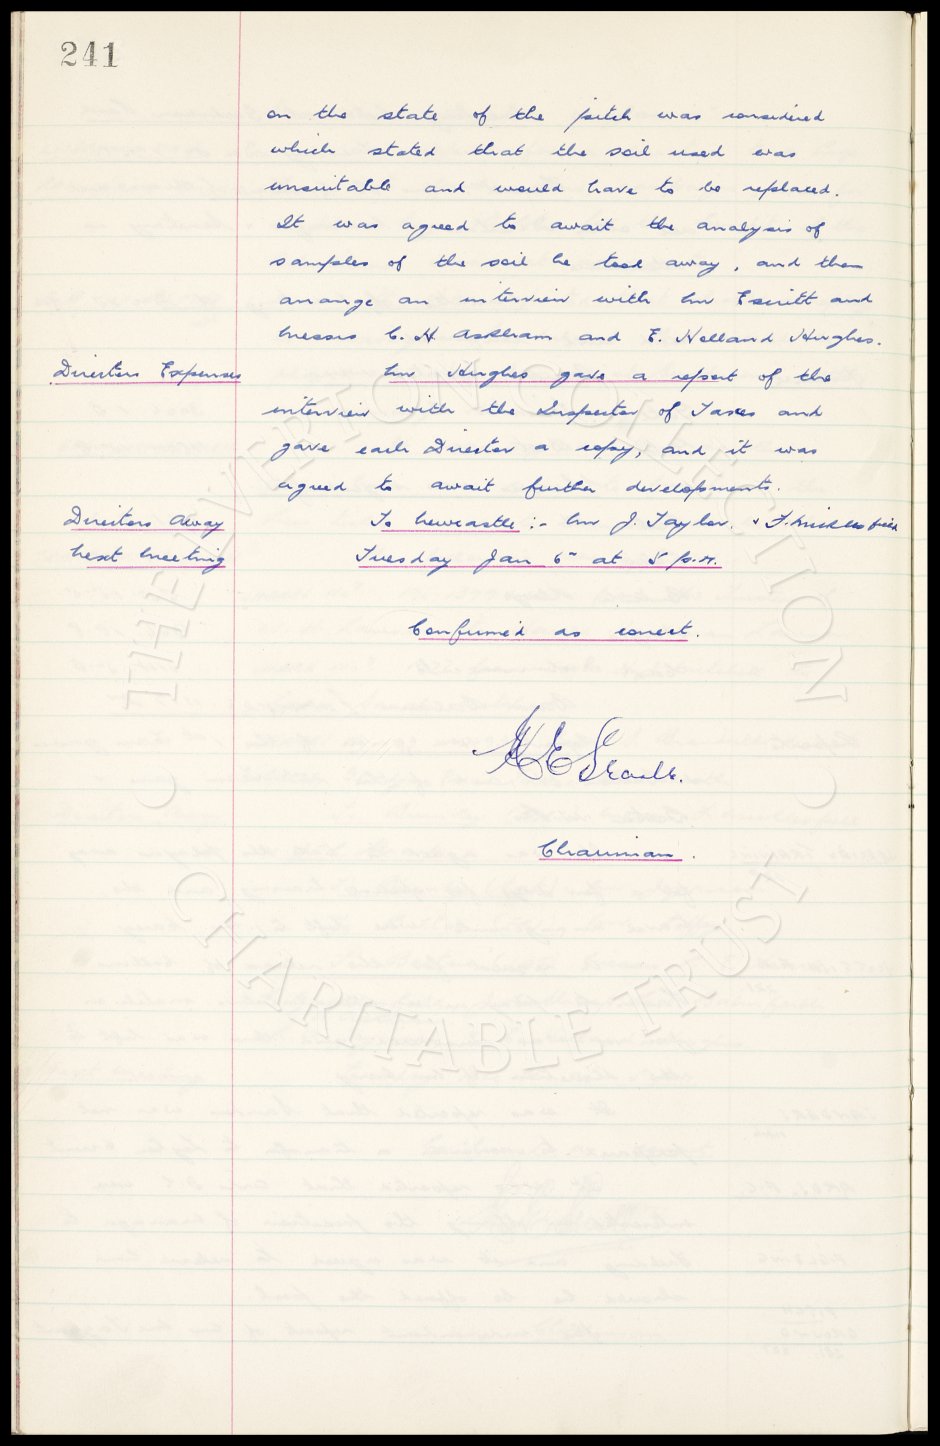 241
on the state of the pitch was considered
which stated that the soil used was
unsuitable and would have to be replaced.
It was agreed to await the analysis of
samples of the soil he took away, and then
arrange an interview with Mr Escritt and
Messrs C. H. Askham and E. Holland Hughes.
Directors Expenses Mr Hughes gave a report of the
interview with the Inspector of Taxes and
gave each Director a copy, and it was
agreed to await further developments.
Directors Away To Newcastle :- Mr J. Taylor. & F. Micklesfield
Next Meeting Tuesday Jan 6th at 5 p.m.
Confirmed as correct.
Chairman.
© THE EVERTON COLLECTION
CHARITABLE TRUST